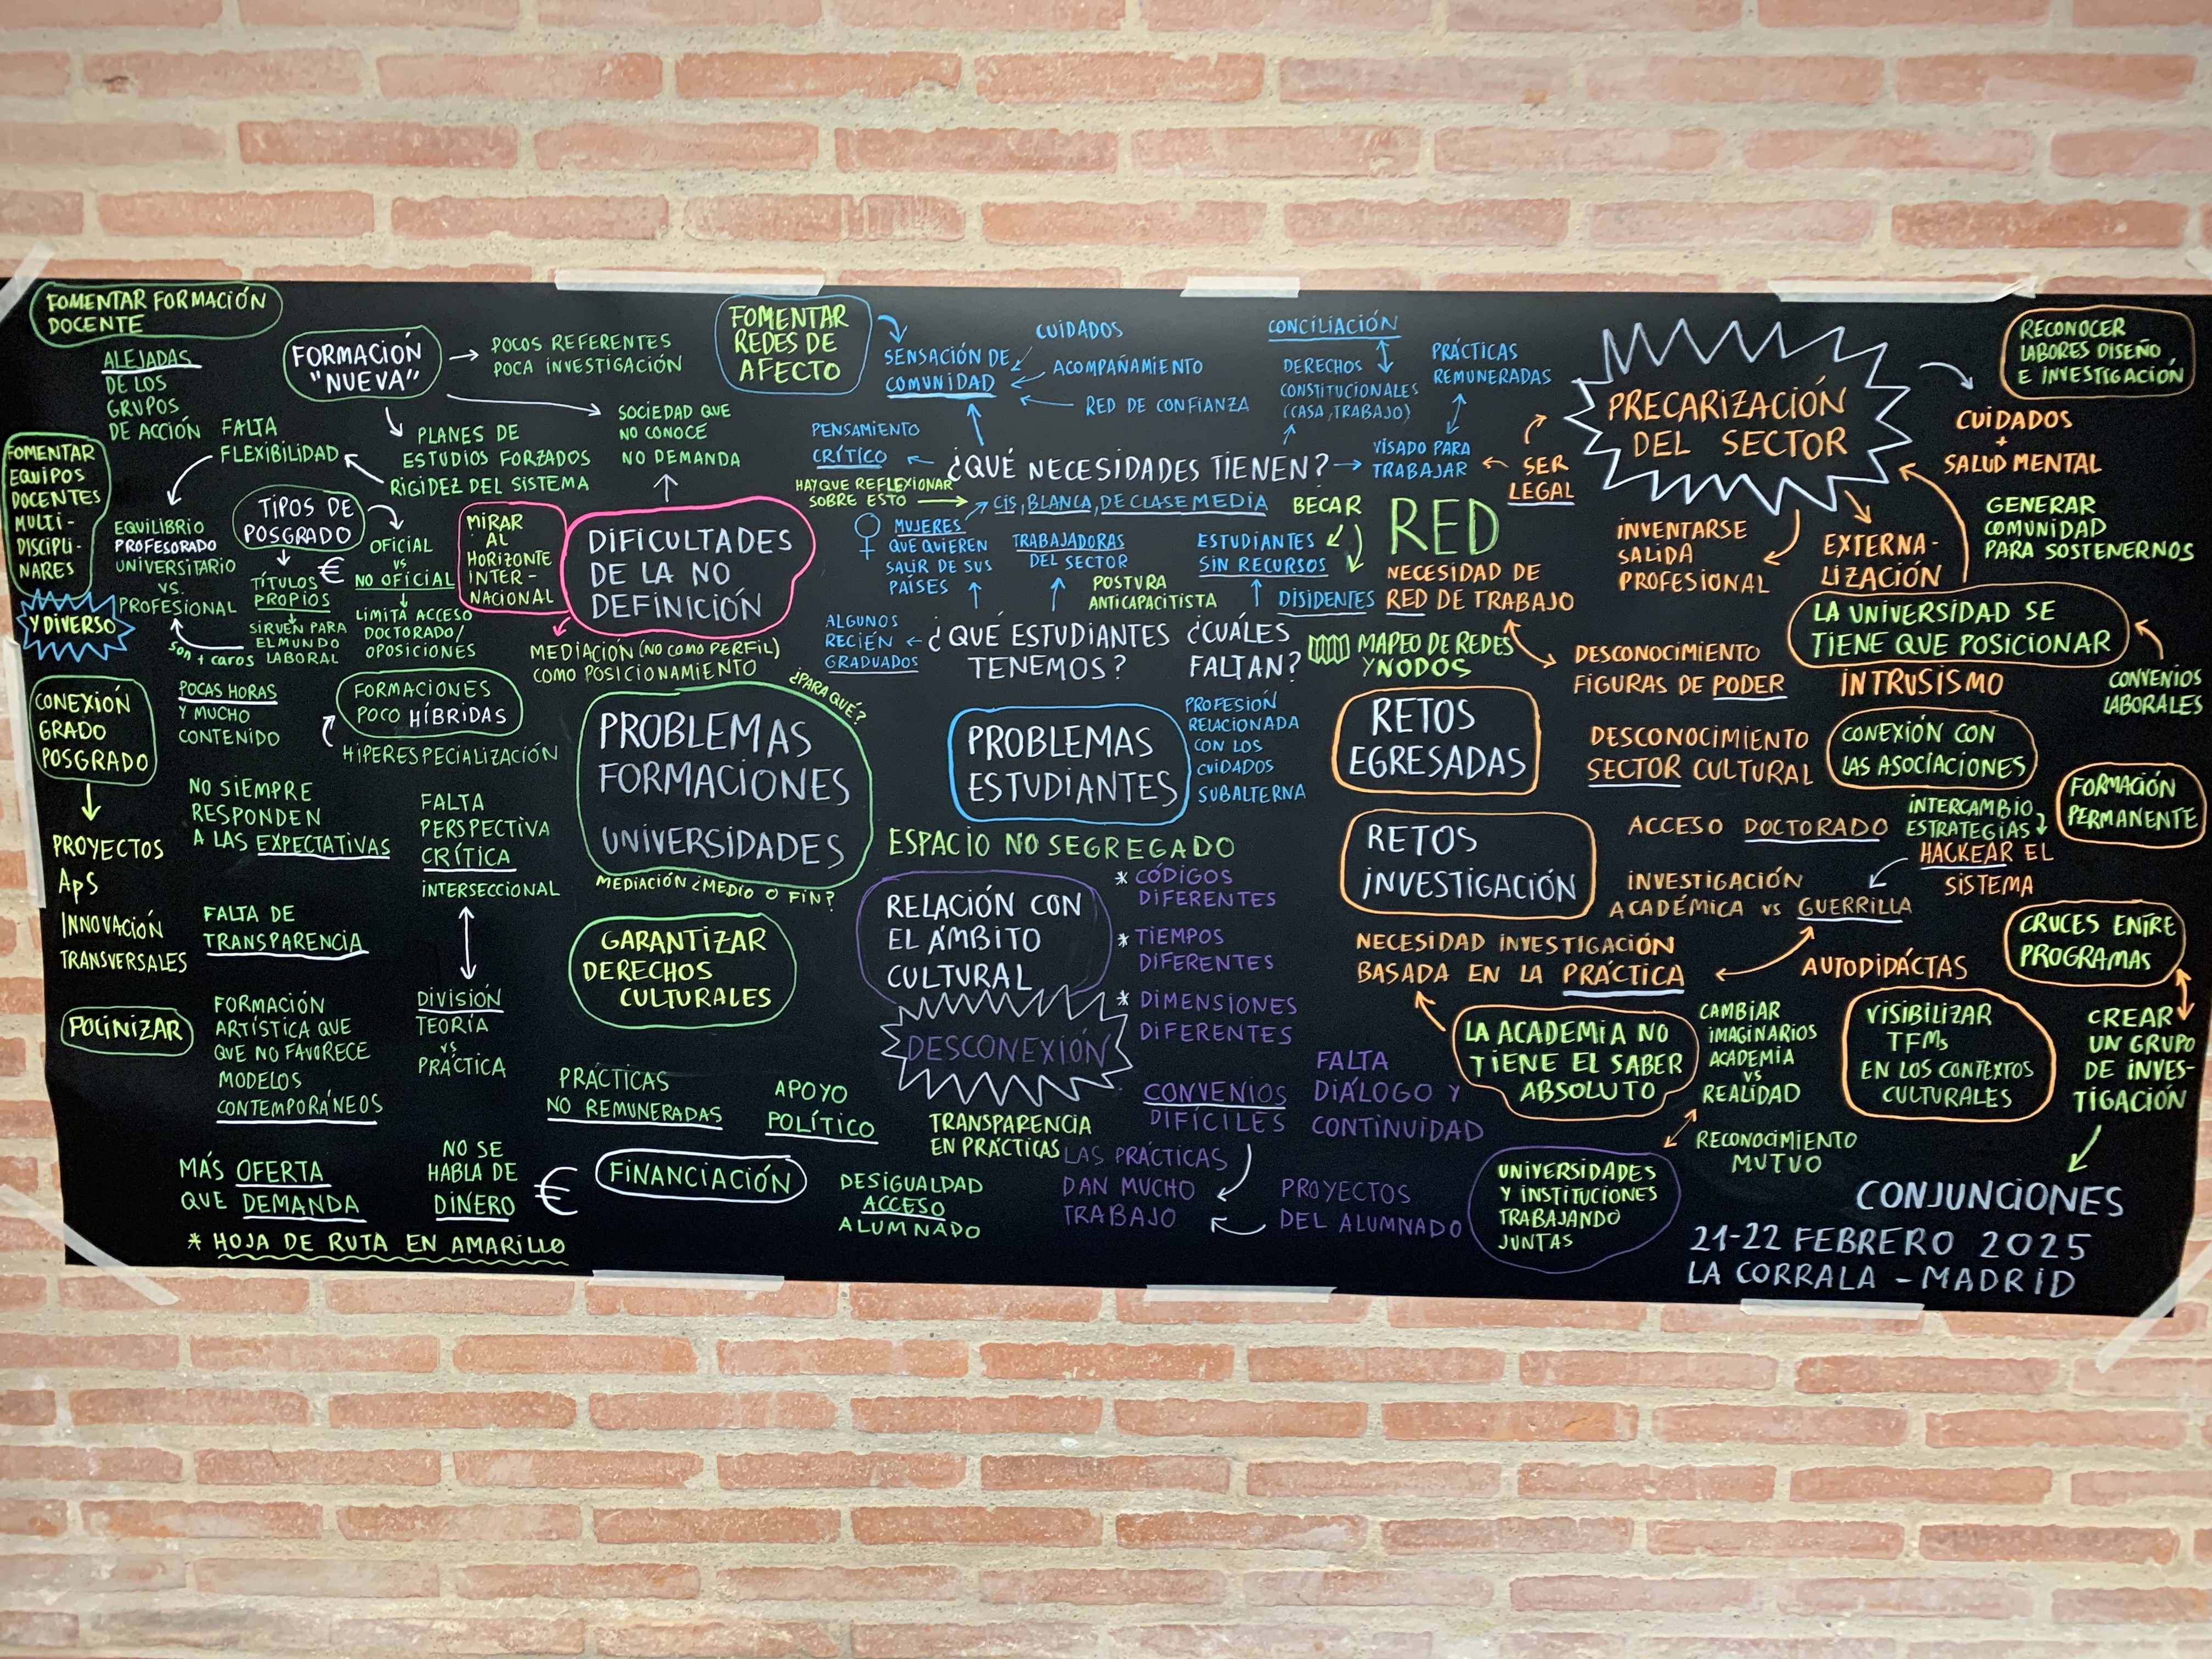 FOMENTAR FORMACIÓN
DOCENTE
ALEJADAS
DE LOS
GRUPOS
DE ACCIÓN
FORMACIÓN
"NUEVA"
POCOS REFERENTES
POCA INVESTIGACIÓN
SOCIEDAD QUE
NO CONOCE
NO DEMANDA
PLANES DE
ESTUDIOS FORZADOS
RIGIDEZ DEL SISTEMA
FALTA
FLEXIBILIDAD
FOMENTAR
EQUIPOS
DOCENTES
MULTI-
DISCIPLI-
NARES
Y DIVERSO
EQUILIBRIO
PROFESORADO
UNIVERSITARIO
VS.
PROFESIONAL
TIPOS DE
POSGRADO
€
TÍTULOS
PROPIOS
SIRVEN PARA
EL MUNDO
LABORAL
SON + CAROS
OFICIAL
VS
NO OFICIAL
LIMITA ACCESO
DOCTORADO/
OPOSICIONES
MIRAR
AL
HORIZONTE
INTER-
NACIONAL
DIFICULTADES
DE LA NO
DEFINICIÓN
MEDIACIÓN (NO COMO PERFIL)
COMO POSICIONAMIENTO
¿PARA QUÉ?
CONEXIÓN
GRADO
POSGRADO
PROYECTOS
ApS
INNOVACIÓN
TRANSVERSALES
POLINIZAR
POCAS HORAS
Y MUCHO
CONTENIDO
FORMACIONES
POCO HÍBRIDAS
HIPERESPECIALIZACIÓN
NO SIEMPRE
RESPONDEN
A LAS EXPECTATIVAS
FALTA
PERSPECTIVA
CRÍTICA
INTERSECCIONAL
FALTA DE
TRANSPARENCIA
DIVISIÓN
TEORÍA
VS
PRÁCTICA
FORMACIÓN
ARTÍSTICA QUE
QUE NO FAVORECE
MODELOS
CONTEMPORÁNEOS
PROBLEMAS
FORMACIONES
UNIVERSIDADES
MEDIACIÓN ¿MEDIO O FIN?
GARANTIZAR
DERECHOS
CULTURALES
PRÁCTICAS
NO REMUNERADAS
APOYO
POLÍTICO
MÁS OFERTA
QUE DEMANDA
NO SE
HABLA DE
DINERO
€
FINANCIACIÓN
DESIGUALDAD
ACCESO
ALUMNADO
* HOJA DE RUTA EN AMARILLO
FOMENTAR
REDES DE
AFECTO
SENSACIÓN DE
COMUNIDAD
CUIDADOS
ACOMPAÑAMIENTO
RED DE CONFIANZA
CONCILIACIÓN
DERECHOS
CONSTITUCIONALES
(CASA, TRABAJO)
PRÁCTICAS
REMUNERADAS
VISADO PARA
TRABAJAR
PENSAMIENTO
CRÍTICO
¿QUÉ NECESIDADES TIENEN?
HAY QUE REFLEXIONAR
SOBRE ESTO
CIS, BLANCA, DE CLASE MEDIA
MUJERES
QUE QUIEREN
SALIR DE SUS
PAÍSES
TRABAJADORAS
DEL SECTOR
POSTURA
ANTICAPACITISTA
BECAR
ESTUDIANTES
SIN RECURSOS
DISIDENTES
ALGUNOS
RECIÉN
GRADUADOS
¿QUÉ ESTUDIANTES
TENEMOS?
¿CUÁLES
FALTAN?
PROFESIÓN
RELACIONADA
CON LOS
CUIDADOS
SUBALTERNA
PROBLEMAS
ESTUDIANTES
ESPACIO NO SEGREGADO
RELACIÓN CON
EL ÁMBITO
CULTURAL
DESCONEXIÓN
* CÓDIGOS
DIFERENTES
* TIEMPOS
DIFERENTES
* DIMENSIONES
DIFERENTES
TRANSPARENCIA
EN PRÁCTICAS
CONVENIOS
DIFÍCILES
FALTA
DIÁLOGO Y
CONTINUIDAD
LAS PRÁCTICAS
DAN MUCHO
TRABAJO
PROYECTOS
DEL ALUMNADO
UNIVERSIDADES
Y INSTITUCIONES
TRABAJANDO
JUNTAS
PRECARIZACIÓN
DEL SECTOR
SER
LEGAL
RECONOCER
LABORES DISEÑO
E INVESTIGACIÓN
CUIDADOS
+
SALUD MENTAL
GENERAR
COMUNIDAD
PARA SOSTENERNOS
INVENTARSE
SALIDA
PROFESIONAL
EXTERNA-
LIZACIÓN
RED
NECESIDAD DE
RED DE TRABAJO
MAPEO DE REDES
Y NODOS
LA UNIVERSIDAD SE
TIENE QUE POSICIONAR
CONVENIOS
LABORALES
DESCONOCIMIENTO
FIGURAS DE PODER
INTRUSISMO
RETOS
EGRESADAS
DESCONOCIMIENTO
SECTOR CULTURAL
CONEXIÓN CON
LAS ASOCIACIONES
FORMACIÓN
PERMANENTE
RETOS
INVESTIGACIÓN
ACCESO DOCTORADO
INTERCAMBIO
ESTRATEGIAS
HACKEAR EL
SISTEMA
INVESTIGACIÓN
ACADÉMICA VS GUERRILLA
NECESIDAD INVESTIGACIÓN
BASADA EN LA PRÁCTICA
AUTODIDÁCTAS
CRUCES ENTRE
PROGRAMAS
LA ACADEMIA NO
TIENE EL SABER
ABSOLUTO
CAMBIAR
IMAGINARIOS
ACADEMIA
VS
REALIDAD
RECONOCIMIENTO
MUTUO
VISIBILIZAR
TFMs
EN LOS CONTEXTOS
CULTURALES
CREAR
UN GRUPO
DE INVES-
TIGACIÓN
CONJUNCIONES
21-22 FEBRERO 2025
LA CORRALA - MADRID